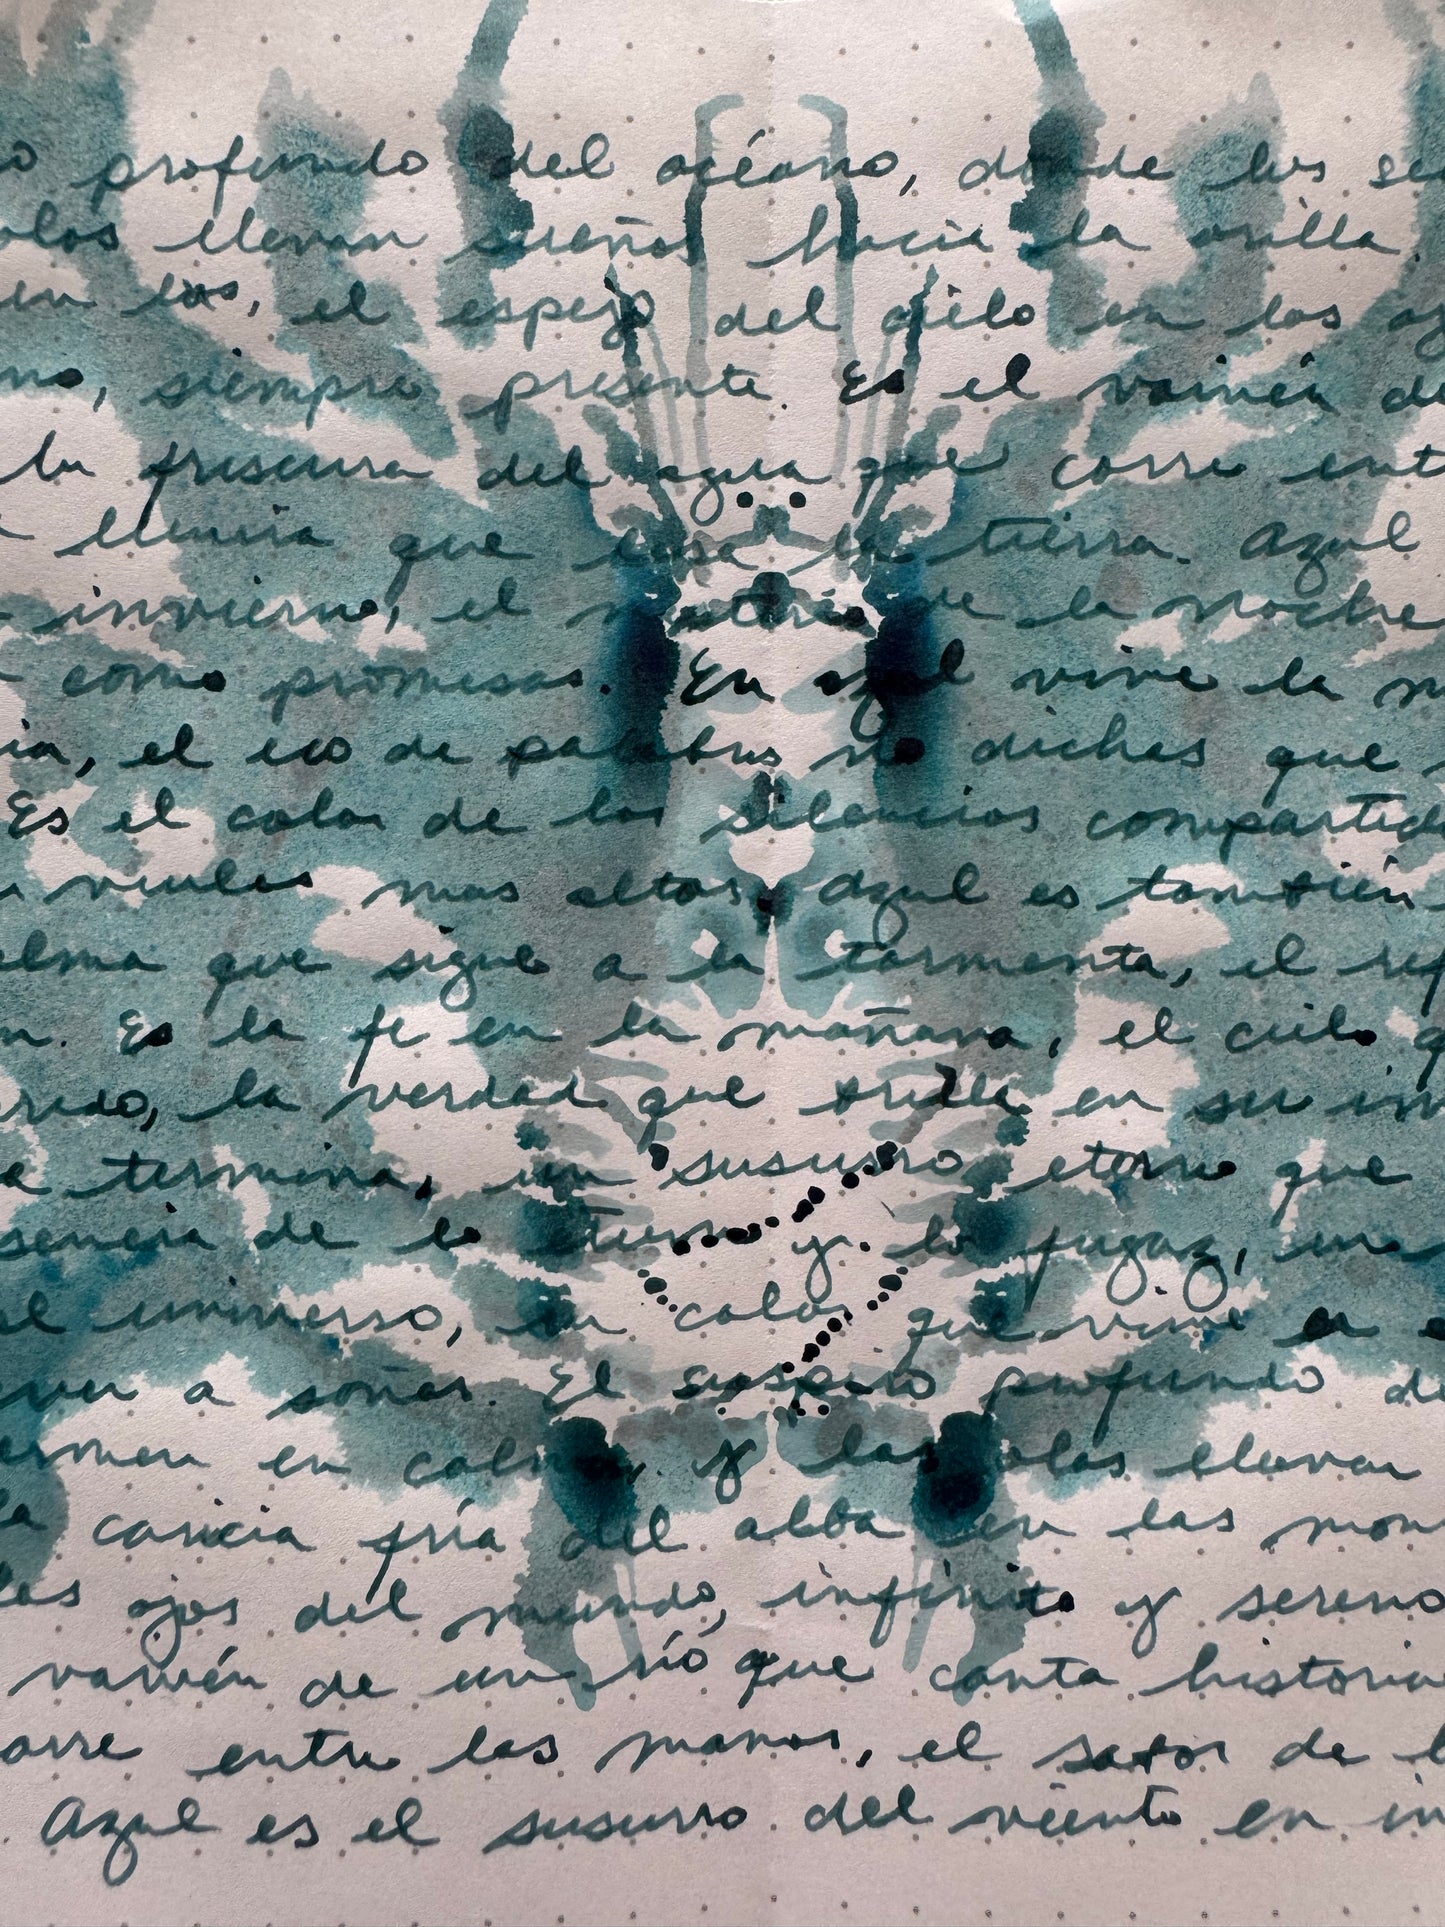 profundo del océano, donde los se
olas llevan sueños hacia la orilla
en los, el espejo del cielo en los oj
siempre presente. Es el vaivén de
la frescura del agua que corre ent
lluvia que besa la tierra. Azul
invierno, el misterio de la noche
como promesas. En azul vive la m
ia, el eco de palabras no dichas que
Es el color de los silencios compartido
vuelos mas altos. Azul es también
alma que sigue a la tormenta, el ref
n. Es la fe en la mañana, el cielo q
la verdad que brilla en su in
termina, un susurro eterno que
sencia de lo eterno y lo fugaz, un
el universo, un color que vive en e
ver a soñar. El suspiro profundo de
ermen en calma, y las olas llevan
la caricia fría del alba en las mon
los ojos del mundo, infinito y sereno
vaivén de un río que canta historia
orre entre las manos, el sabor de l
. Azul es el susurro del viento en in